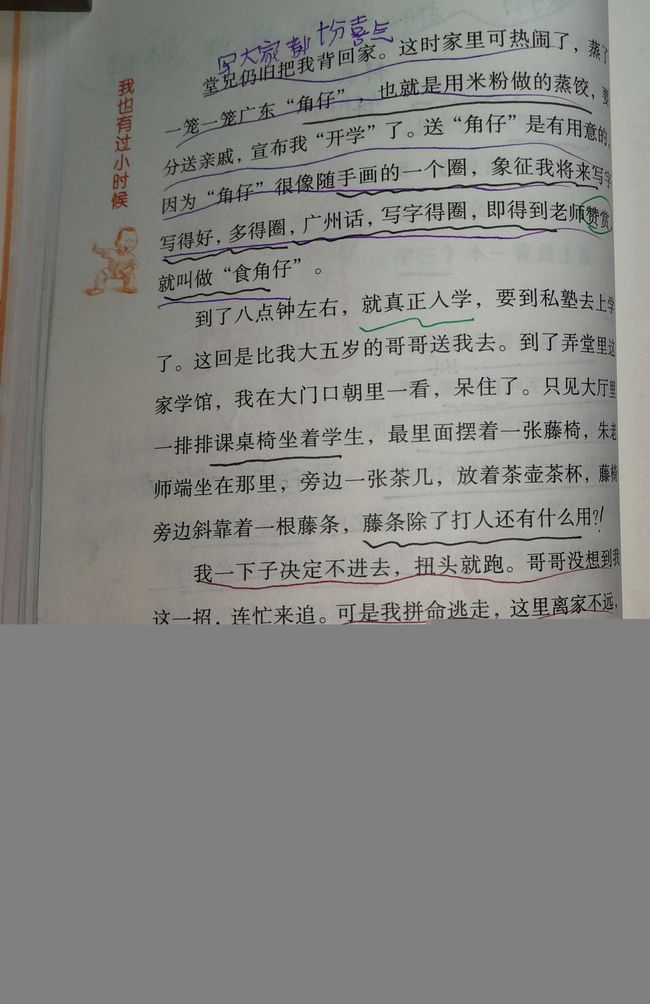 我也有过小时候
写大家都十分喜气
堂兄仍旧把我背回家。这时家里可热闹了，蒸了
一笼一笼广东“角仔”，也就是用米粉做的蒸饺，要
分送亲戚，宣布我“开学”了。送“角仔”是有用意的，
因为“角仔”很像随手画的一个圈，象征我将来写字
写得好，多得圈，广州话，写字得圈，即得到老师赞赏，
就叫做“食角仔”。
到了八点钟左右，就真正入学，要到私塾去上学
了。这回是比我大五岁的哥哥送我去。到了弄堂里这
家学馆，我在大门口朝里一看，呆住了。只见大厅里
一排排课桌椅坐着学生，最里面摆着一张藤椅，朱老
师端坐在那里，旁边一张茶几，放着茶壶茶杯，藤椅
旁边斜靠着一根藤条，藤条除了打人还有什么用?!
我一下子决定不进去，扭头就跑。哥哥没想到我
这一招，连忙来追。可是我拼命逃走，这里离家不远，